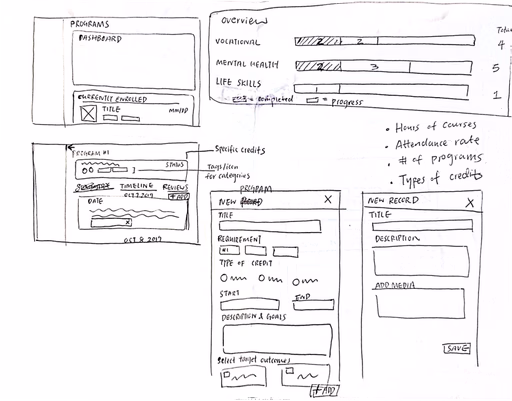 PROGRAMS
DASHBOARD
CURRENTLY ENROLLED
TITLE
MM/DD
overview
Total
VOCATIONAL
2
2
4
MENTAL HEALTH
2
3
5
LIFE SKILLS
1
1
= completed
= progress
• Hours of courses
• Attendance rate
• # of programs
• Types of credits
PROGRAM #1
STATUS
Specific credits
Tags/icon
for categories
TIMELINE
REVIEWS
OCT 2, 2017
+ ADD
DATE
X
OCT 8, 2017
PROGRAM
NEW RECORD
X
TITLE
REQUIREMENT
#1
TYPE OF CREDIT
START
END
DESCRIPTION & GOALS
Select target outcomes
+ ADD
NEW RECORD
X
TITLE
DESCRIPTION
ADD MEDIA
SAVE